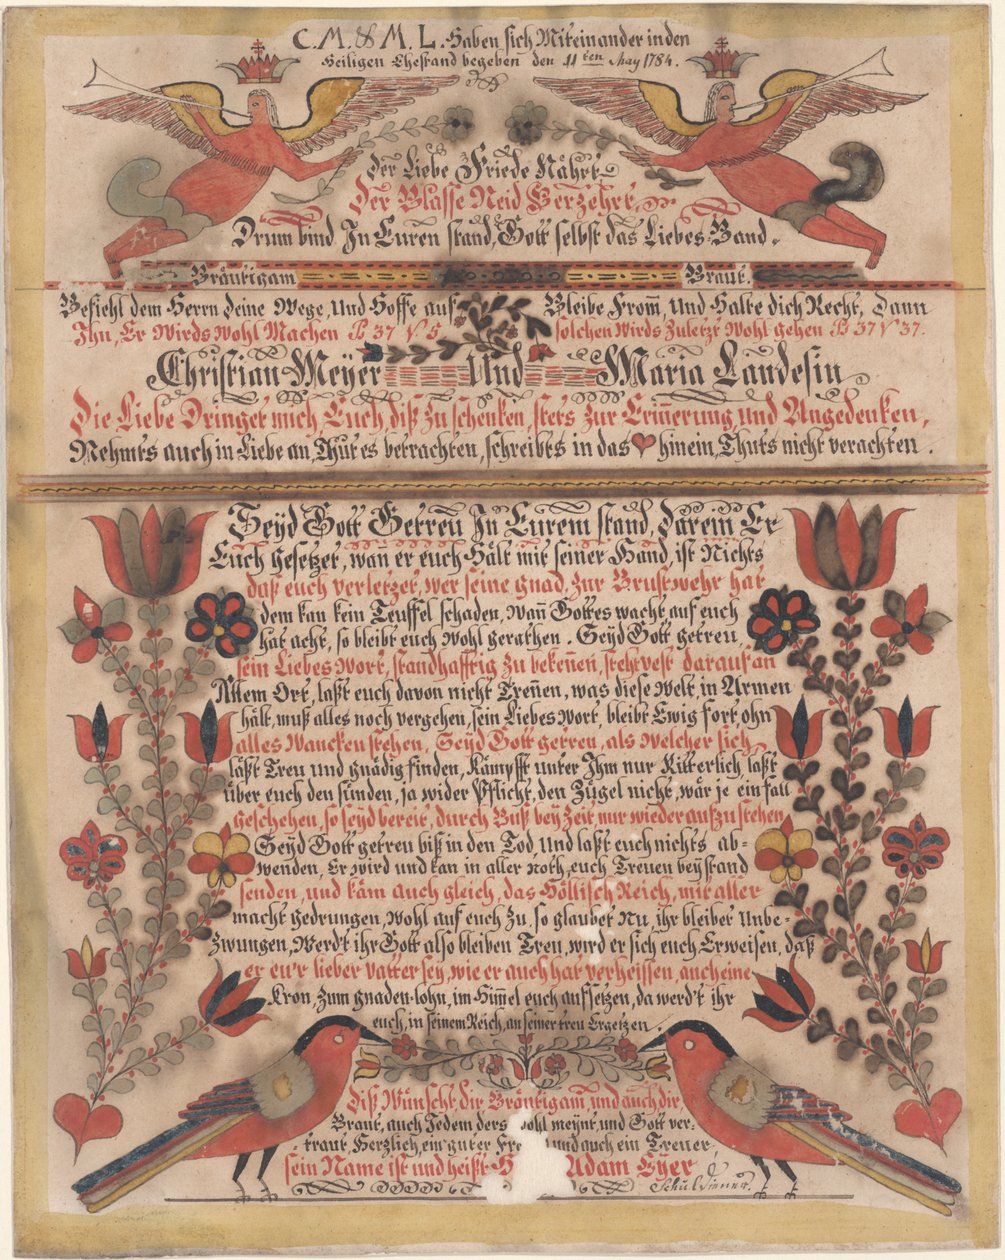 C. M. & M. L. Haben sich Miteinander in den
Heiligen Ehestand begeben den 11ten May 1784.
Der Liebe Friede Nährt
Der Blasse Neid Verzehrt
Drum bind In Euren stand, Gott selbst das Liebes-Band.
Bräutigam Braut.
Befiehl dem Herrn deine Wege, Und Hoffe auf Bleibe From̅, Und Halte dich Recht, Dann
Ihn, Er Wirds Wohl Machen Ps 37 V 5 solchen wirds Zuletzt Wohl gehen Ps 37 V 37.
Christian Meyer Und Maria Landesin
Die Liebe Dringet mich, Euch diß Zu schenken, stets Zur Erin̅erung, und Angedenken,
Nehmts auch in Liebe an, Thut es betrachten, schreibts in das hinein, Thuts nicht verachten.
Seyd Gott Getreu In Eurem stand, Darein Er
Euch Gesetzet, wan̅ er euch Hält mit seiner Hand, ist Nichts
daß euch verletzet, wer seine gnad, Zur Brustwehr hat
dem kan kein Teuffel schaden, Wan̅ Gottes wacht auf euch
hat acht, so bleibt euch Wohl gerathen. Seyd Gott getreu,
sein Liebes Wort, standhafftig Zu beken̅en, steht vest darauf an
Allem Ort, laßt euch davon nicht Tren̅en, was diese Welt, in Armen
hält, muß alles noch vergehen, sein Liebes Wort, bleibt Ewig fort, ohn
alles Wancken stehen, Seyd Gott getreu, als Welcher sich
läßt Treu Und gnädig finden, Kämpfft unter Ihm nur Ritterlich laßt
über euch den sünden, ja wider Pflicht, den Zügel nicht, wär je ein fall
geschehen, so seyd bereit, durch Buß bey Zeit nur wieder aufzustehen
Seyd Gott getreu biß in den Tod, Und laßt euch nichts ab-
wenden, Er wird und kan in aller noth, euch Treuen beystand
senden, und käm auch gleich, das Höllisch Reich, mit aller
macht gedrungen, Wohl auf euch Zu, so glaubet Nu, ihr bleibet Unbe-
Zwungen, Werd't ihr Gott also bleiben Treu, wird er sich euch Erweisen, daß
er eu'r lieber vatter sey, wie er auch hat verheissen, auch eine
Kron, Zum gnaden-lohn, im Him̅el euch aufsetzen, da werd't ihr
euch, in seinem Reich, an seiner treu Ergetzen.
Diß Wünscht, dir Bräutigam, und auch dir,
Braut, auch Jedem ders wohl meynt, und Gott ver-
traut Hertzlich, ein guter und auch ein Treuer,
sein Name ist und heißt Adam Eyer
Schuldiener.